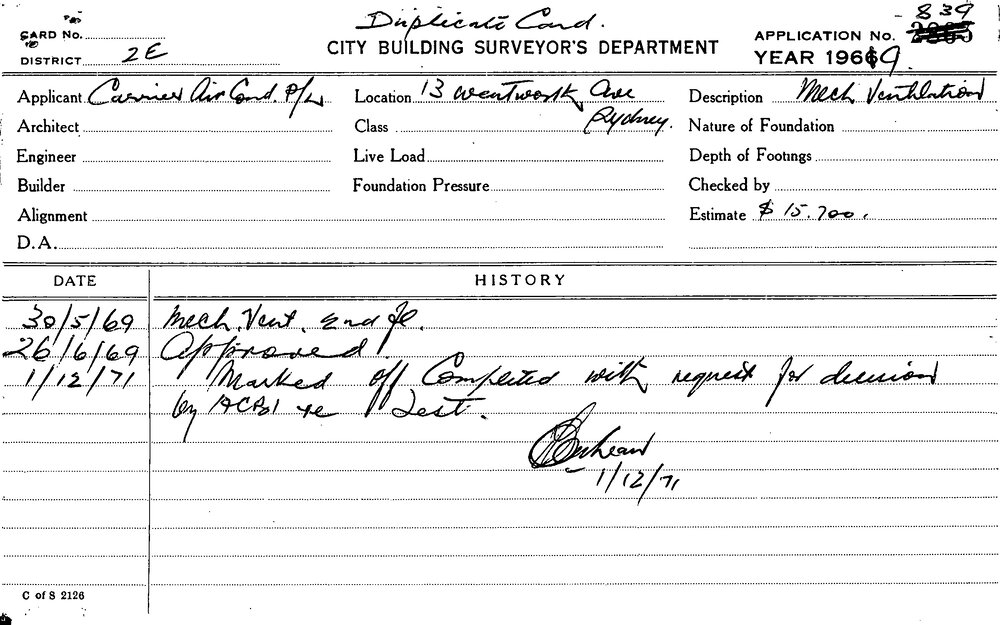 Duplicate Card.
CARD No.
CITY BUILDING SURVEYOR'S DEPARTMENT
APPLICATION No. 839
DISTRICT 2E
YEAR 1969.
Applicant Carrier Air Cond. P/L
Location 13 Wentworth Ave
Sydney.
Description Mech Ventilation
Architect
Class
Nature of Foundation
Engineer
Live Load
Depth of Footings
Builder
Foundation Pressure
Checked by
Alignment
Estimate $ 15.700.
D.A.
DATE HISTORY
30/5/69 Mech. Vent. 2nd fl.
26/6/69 Approved
1/12/71 Marked off Completed with request for decision
by re Test.
1/12/71
C of S 2126